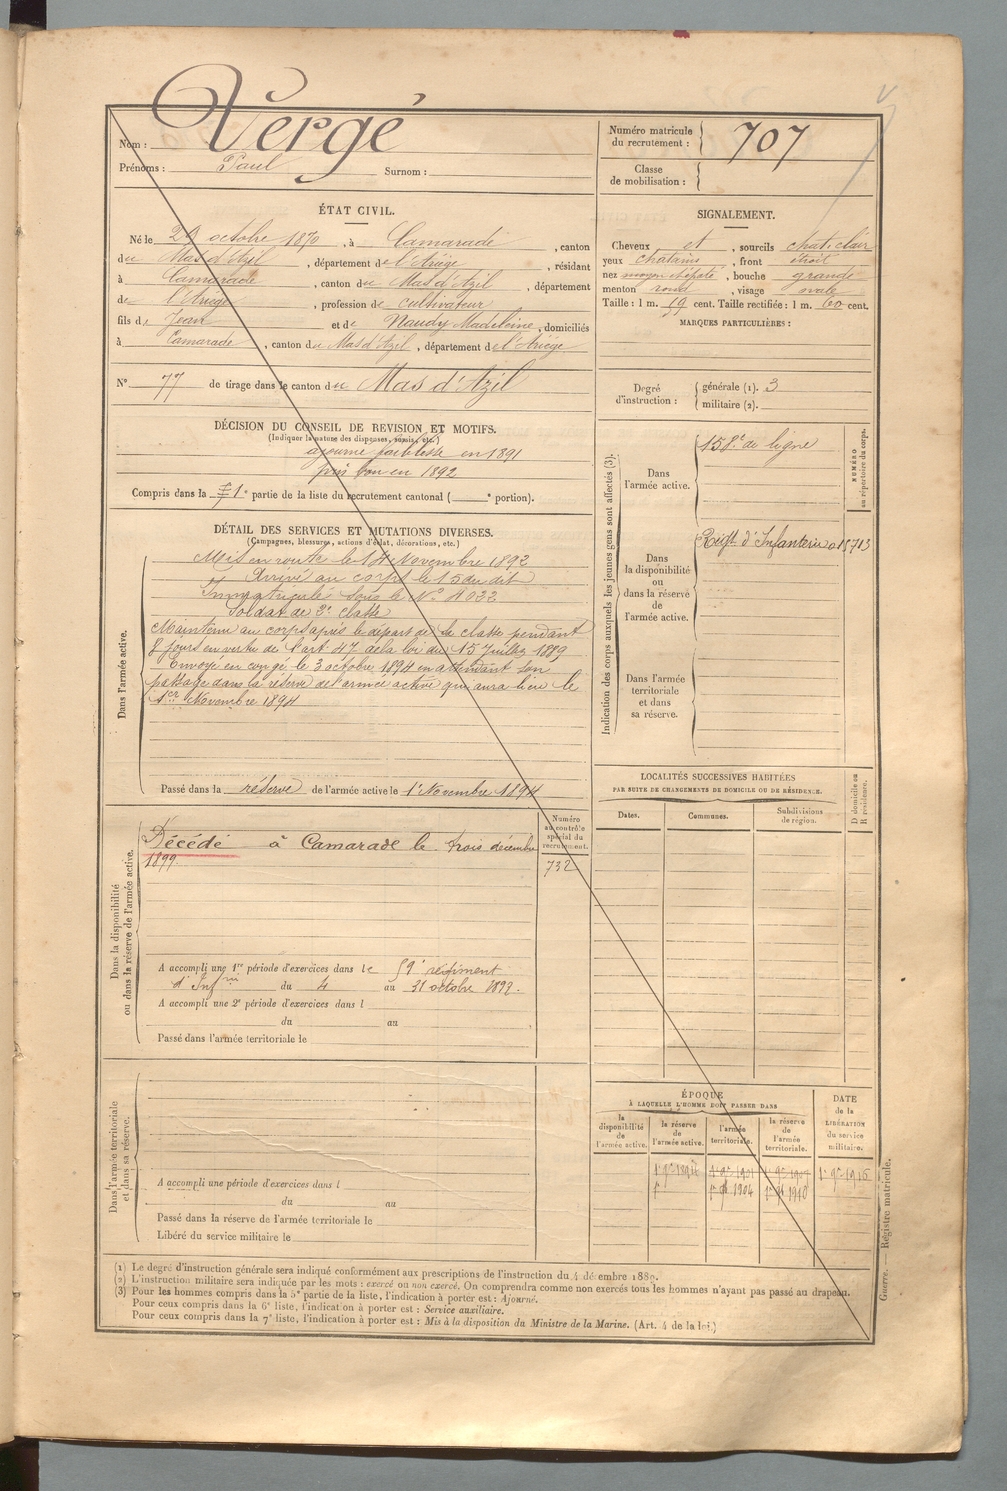 Vergé
Nom :
Prénoms : Paul Surnom :
Numéro matricule
du recrutement : 707
Classe
de mobilisation :
ÉTAT CIVIL.
Né le 29 octobre 1870, à Camarade, canton
du Mas d'Azil, département de l'Ariège, résidant
à Camarade, canton du Mas d'Azil, département
de l'Ariège, profession de cultivateur
fils de Jean et de Naudy Madeleine, domiciliés
à Camarade, canton du Mas d'Azil, département de l'Ariège
N° 77 de tirage dans le canton du Mas d'Azil
SIGNALEMENT.
Cheveux et, sourcils chat. clair
yeux chatains, front étroit
nez moyen épaté, bouche grande
menton rond, visage ovale
Taille : 1 m. 59 cent. Taille rectifiée : 1 m. 60 cent.
MARQUES PARTICULIÈRES :
Degré
d'instruction :
générale (1). 3
militaire (2).
DÉCISION DU CONSEIL DE REVISION ET MOTIFS.
(Indiquer la nature des dispenses, sursis, etc.)
ajourné faiblesse en 1891
pris bon en 1892
Compris dans la 1e partie de la liste du recrutement cantonal ( e portion).
DÉTAIL DES SERVICES ET MUTATIONS DIVERSES.
(Campagnes, blessures, actions d'éclat, décorations, etc.)
Dans l'armée active.
Mis en route le 14 Novembre 1892
Arrivé au corps le 15 du dit
Immatriculé sous le N° 4022
Soldat de 2e classe
Maintenu au corps après le départ de la classe pendant
8 jours en vertu de l'art. 47 de la loi du 15 Juillet 1889
Envoyé en congé le 3 octobre 1894 en attendant son
passage dans la réserve de l'armée active qui aura lieu le
1er Novembre 1894
Passé dans la réserve de l'armée active le 1er Novembre 1894
Indication des corps auxquels les jeunes gens sont affectés (3).
NUMÉRO
au répertoire du corps.
Dans
l'armée active.
158e de ligne
Dans
la disponibilité
ou
dans la réserve
de
l'armée active.
Régt d'Infanterie
Dans l'armée
territoriale
et dans
sa réserve.
Dans la disponibilité
ou dans la réserve de l'armée active.
Numéro
au contrôle
spécial du
recrutement.
732
Décédé à Camarade le trois décembre
1899
A accompli une 1re période d'exercices dans le 59e régiment
d'Infrie du 4 au 31 octobre 1897.
A accompli une 2e période d'exercices dans l
du au
Passé dans l'armée territoriale le
LOCALITÉS SUCCESSIVES HABITÉES
PAR SUITE DE CHANGEMENTS DE DOMICILE OU DE RÉSIDENCE.
Dates.
Communes.
Subdivisions
de région.
D domicile ou
R résidence.
Dans l'armée territoriale
et dans sa réserve.
A accompli une période d'exercices dans l
du au
Passé dans la réserve de l'armée territoriale le
Libéré du service militaire le
ÉPOQUE
À LAQUELLE L'HOMME DOIT PASSER DANS
la
disponibilité
de
l'armée active.
la réserve
de
l'armée active.
l'armée
territoriale.
la réserve
de
l'armée
territoriale.
DATE
de la
LIBÉRATION
du service
militaire.
1904 1910
Guerre. — Registre matricule.
(1) Le degré d'instruction générale sera indiqué conformément aux prescriptions de l'instruction du 4 décembre 1889.
(2) L'instruction militaire sera indiquée par les mots : exercé ou non exercé. On comprendra comme non exercés tous les hommes n'ayant pas passé au drapeau.
(3) Pour les hommes compris dans la 5e partie de la liste, l'indication à porter est : Ajourné.
Pour ceux compris dans la 6e liste, l'indication à porter est : Service auxiliaire.
Pour ceux compris dans la 7e liste, l'indication à porter est : Mis à la disposition du Ministre de la Marine. (Art. 4 de la loi.)